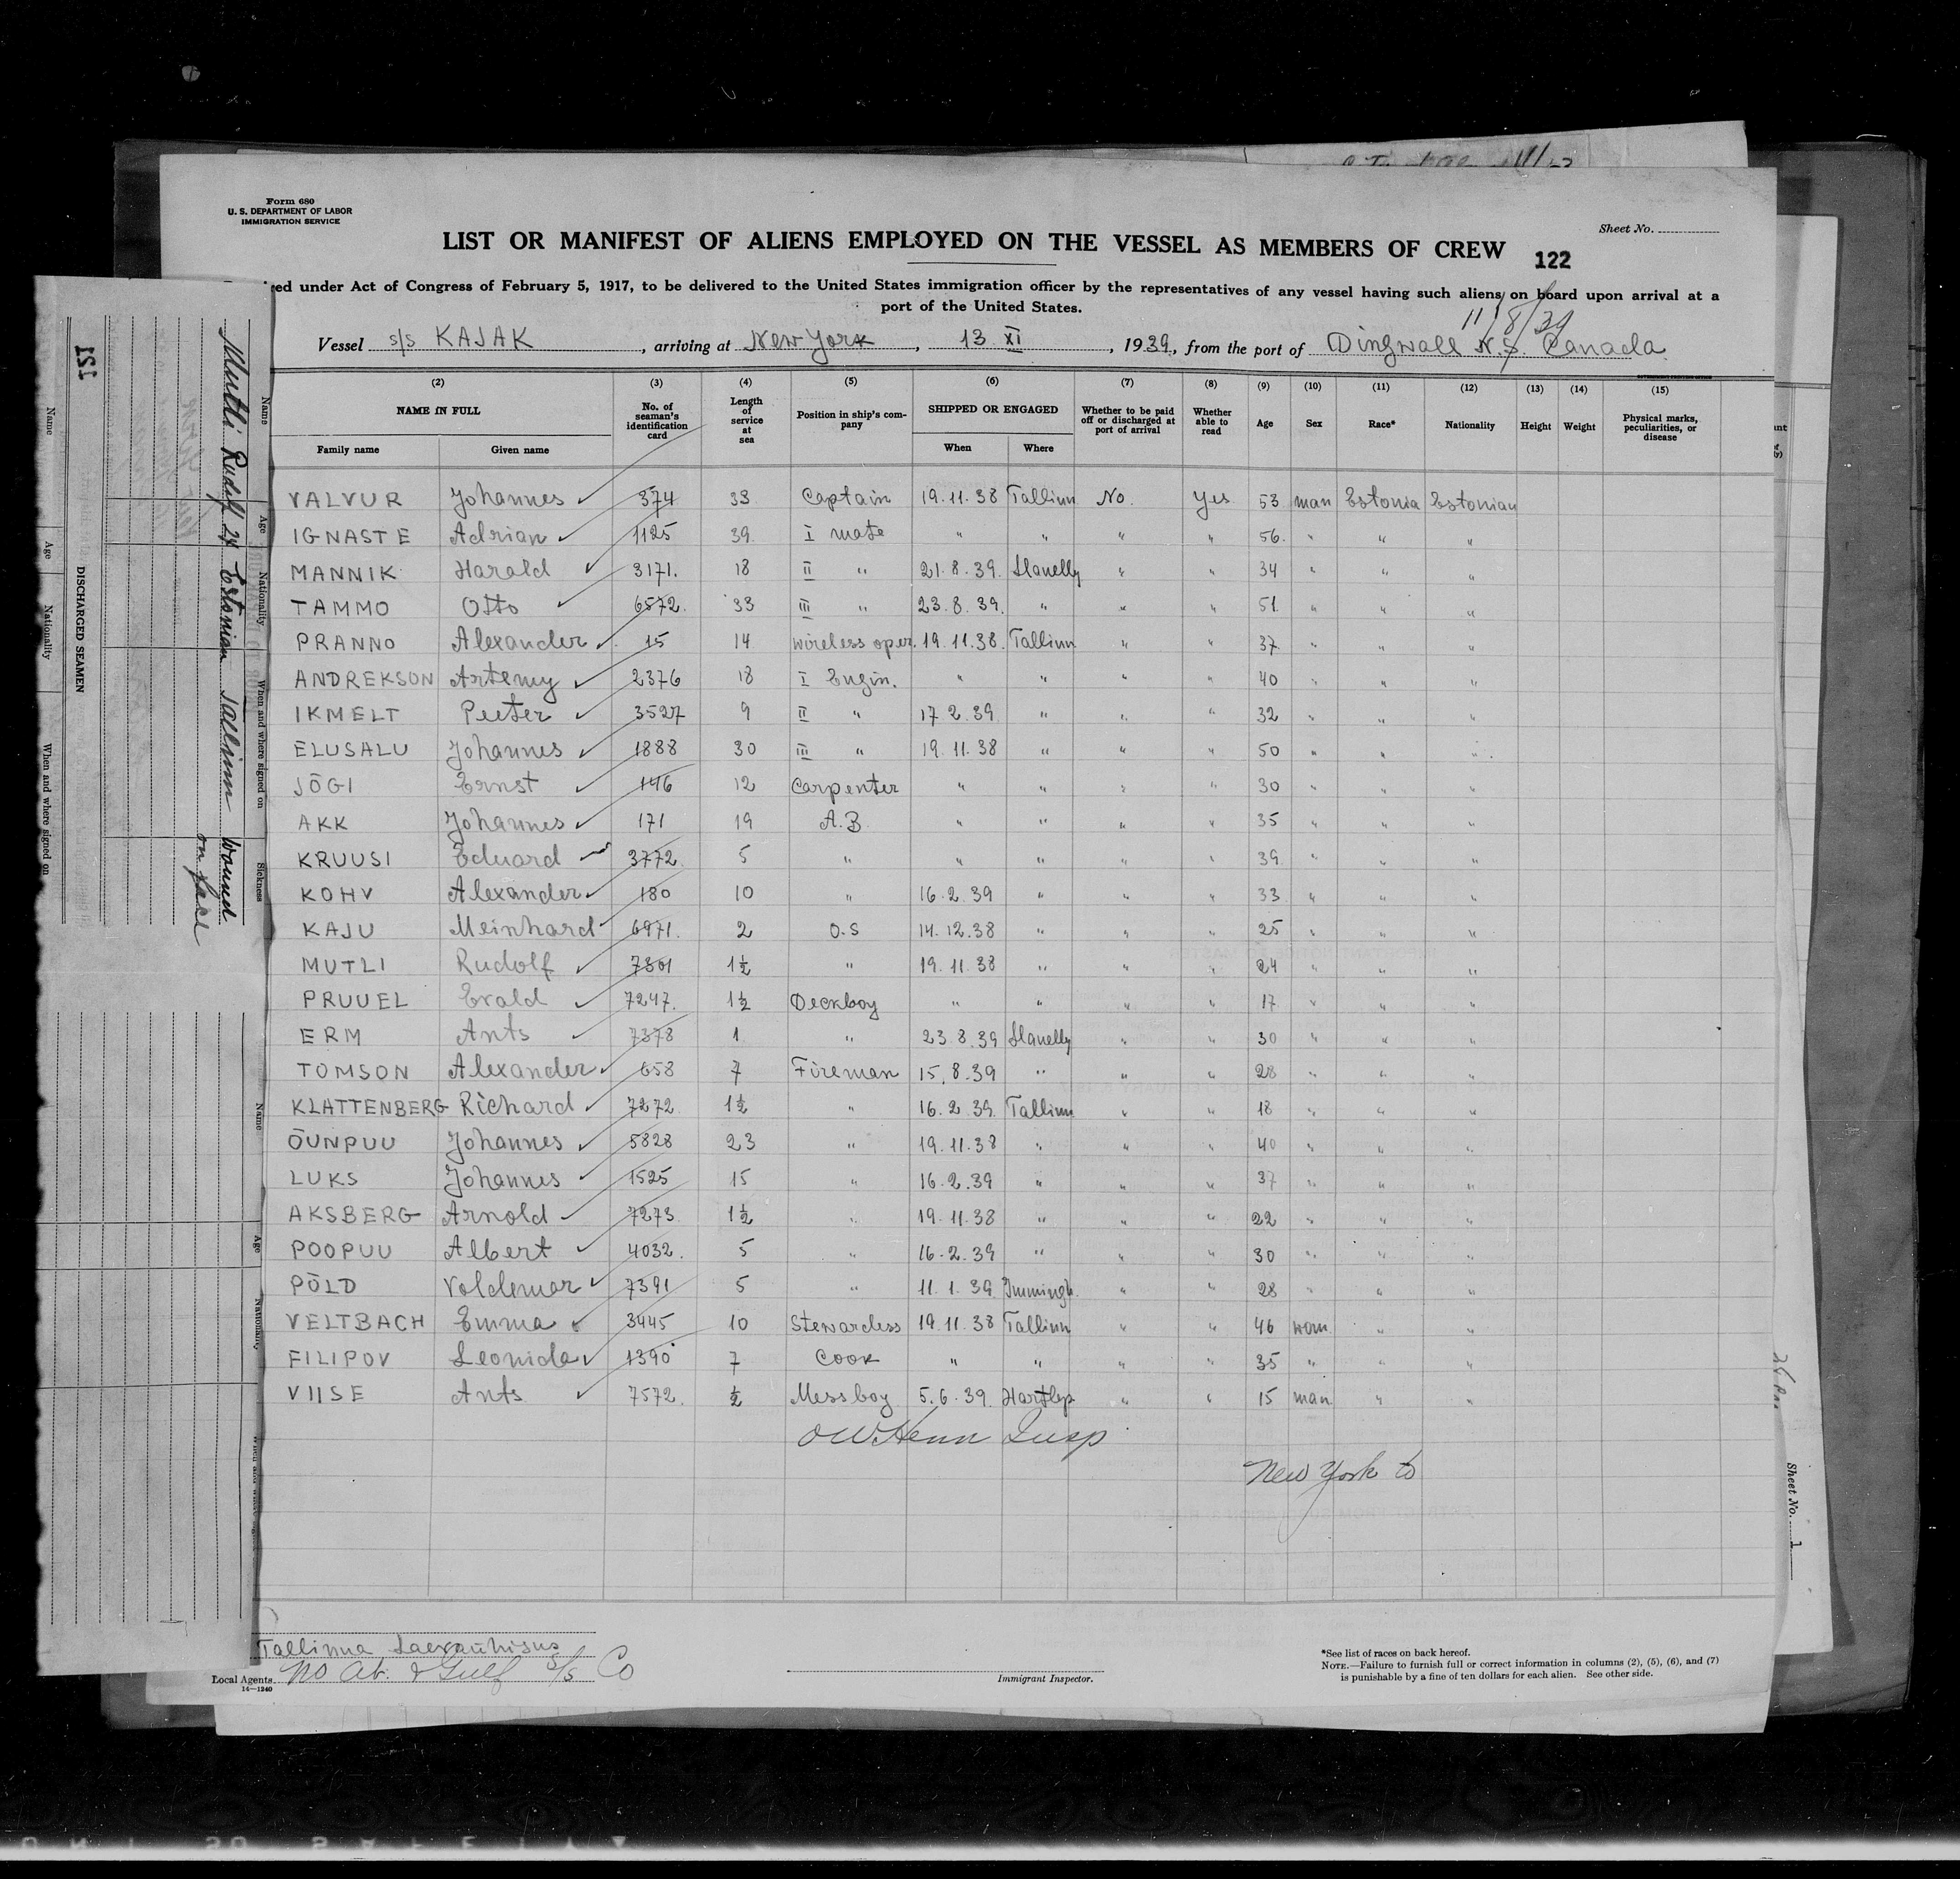 Form 680
U. S. DEPARTMENT OF LABOR
IMMIGRATION SERVICE
Sheet No.
LIST OR MANIFEST OF ALIENS EMPLOYED ON THE VESSEL AS MEMBERS OF CREW
122
under Act of Congress of February 5, 1917, to be delivered to the United States immigration officer by the representatives of any vessel having such aliens on board upon arrival at a
port of the United States.
11/8/39
Vessel s/s KAJAK, arriving at New York, 13 XI, 1939, from the port of Dingwall N.S. Canada
(2) (3) (4) (5) (6) (7) (8) (9) (10) (11) (12) (13) (14) (15)
NAME IN FULL No. of seaman's identification card Length of service at sea Position in ship's company SHIPPED OR ENGAGED Whether to be paid off or discharged at port of arrival Whether able to read Age Sex Race* Nationality Height Weight Physical marks, peculiarities, or disease
Family name Given name When Where
VALVUR Johannes 374 33 Captain 19.11.38 Tallinn No. Yes 53 man Estonia Estonian
IGNASTE Adrian 1125 39 I mate " " " " 56 " " "
MANNIK Harald 3171. 18 II " 21.8.39. Llanelly " " 34 " " "
TAMMO Otto 6572. 33 III " 23.8.39. " " " 51 " " "
PRANNO Alexander 15 14 wireless oper. 19.11.38. Tallinn " " 37 " " "
ANDREKSON Artemy 2376 18 I Engin. " " " " 40 " " "
IKMELT Peeter 3527 9 II " 17.2.39 " " " 32 " " "
ELUSALU Johannes 1888 30 III " 19.11.38 " " " 50 " " "
JÕGI Ernst 146 12 Carpenter " " " " 30 " " "
AKK Johannes 171 19 A.B. " " " " 35 " " "
KRUUSI Eduard 3772 5 " " " " " 39 " " "
KOHV Alexander 180 10 " 16.2.39 " " " 33 " " "
KAJU Meinhard 6971. 2 O.S 14.12.38 " " " 25 " " "
MUTLI Rudolf 7301 1½ " 19.11.38 " " " 24 " " "
PRUUEL Evald 7247. 1½ Deckboy " " " " 17 " " "
ERM Ants 7378 1 " 23.8.39 Llanelly " " 30 " " "
TOMSON Alexander 658 7 Fireman 15.8.39 " " " 28 " " "
KLATTENBERG Richard 7272 1½ " 16.2.39. Tallinn " " 18 " " "
ÕUNPUU Johannes 5828 23 " 19.11.38 " " " 40 " " "
LUKS Johannes 1525 15 " 16.2.39 " " " 37 " " "
AKSBERG Arnold 7273 1½ " 19.11.38 " " " 22 " " "
POOPUU Albert 4032. 5 " 16.2.39 " " " 30 " " "
PÕLD Voldemar 7391 5 " 11.1.39 Immingh. " " 28 " " "
VELTBACH Emma 3445 10 Stewardess 19.11.38 Tallinn " " 46 wom. " "
FILIPOV Leonida 1390 7 Cook " " " " 35 " " "
VIISE Ants 7572. ½ Messboy 5.6.39. Hartlep " " 15 man " "
OW Henn Insp
New York to
Tallinna Laevaühisus
Local Agents No At. & Gulf S/S Co
14—1240
Immigrant Inspector.
*See list of races on back hereof.
NOTE.—Failure to furnish full or correct information in columns (2), (5), (6), and (7)
is punishable by a fine of ten dollars for each alien. See other side.
121
DISCHARGED SEAMEN
Name Age Nationality When and where signed on Sickness
Mutli Rudolf 24 Estonian Tallinn wound
on face
Name Age Nationality When and where signed on
Name Age Nationality
Sheet No. 1